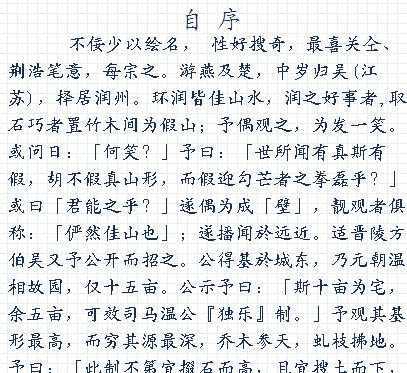 自 序
不佞少以绘名， 性好搜奇，最喜关仝、
荆浩笔意，每宗之。游燕及楚，中岁归吴(江
苏)，择居润州。环润皆佳山水，润之好事者,取
石巧者置竹木间为假山；予偶观之，为发一笑。
或问曰：「何笑？」予曰：「世所闻有真斯有
假，胡不假真山形，而假迎勾芒者之拳磊乎？」
或曰「君能之乎？」遂偶为成「壁」，靓观者俱
称：「俨然佳山也」；遂播闻於远近。适晋陵方
伯吴又予公开而招之。公得基於城东，乃元朝温
相故园，仅十五亩。公示予曰：「斯十亩为宅，
余五亩，可效司马温公『独乐』制。」予观其基
形最高，而穷其源最深，乔木参天，虬枝拂地。
予曰：「此制不第宜掇石而高，且宜搜土而下，